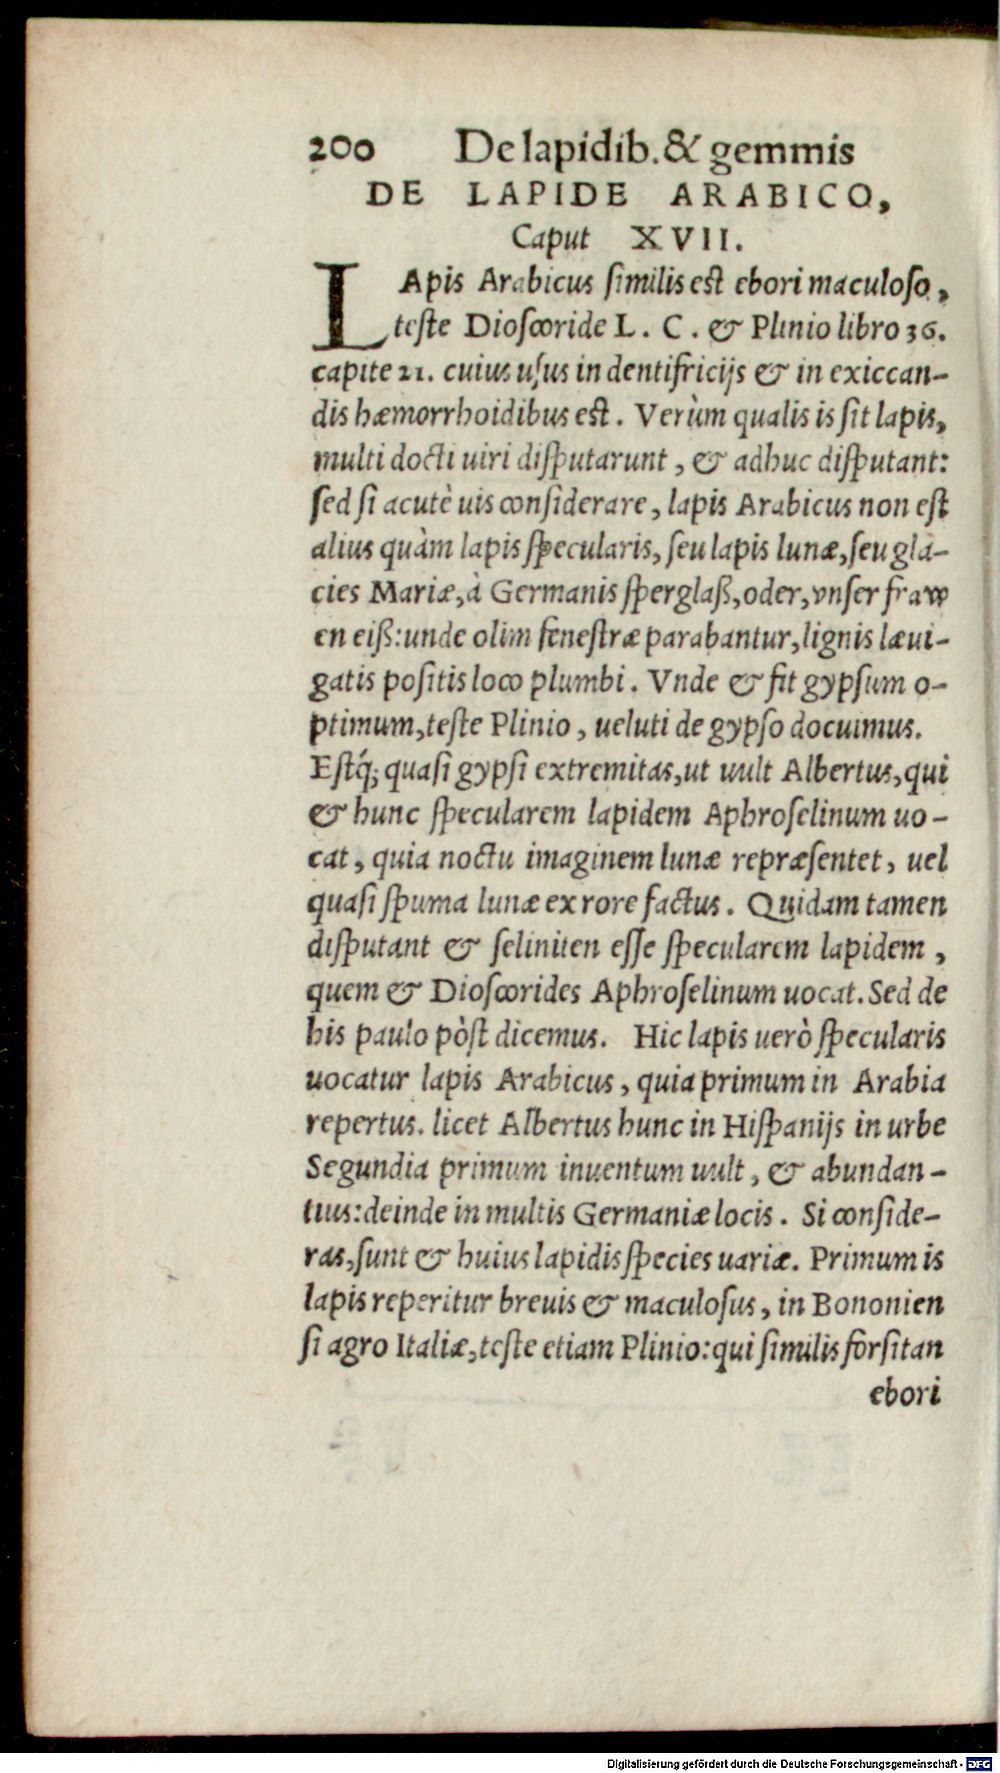 200 De lapidib. & gemmis
DE LAPIDE ARABICO,
Caput XVII.
LApis Arabicus similis est ebori maculoso,
teste Dioscoride L. C. & Plinio libro 36.
capite 21. cuius usus in dentifricijs & in exiccan-
dis hæmorrhoidibus est. Verùm qualis is sit lapis,
multi docti uiri disputarunt, & adhuc disputant:
sed si acutè uis considerare, lapis Arabicus non est
alius quàm lapis specularis, seu lapis lunæ, seu gla-
cies Mariæ, à Germanis sperglaß, oder, vnser fraw
en eiß: unde olim fenestræ parabantur, lignis læui-
gatis positis loco plumbi. Vnde & fit gypsum o-
ptimum, teste Plinio, ueluti de gypso docuimus.
Estq́; quasi gypsi extremitas, ut uult Albertus, qui
& hunc specularem lapidem Aphroselinum uo-
cat, quia noctu imaginem lunæ repræsentet, uel
quasi spuma lunæ ex rore factus. Quidam tamen
disputant & seliniten esse specularem lapidem,
quem & Dioscorides Aphroselinum uocat. Sed de
his paulo pòst dicemus. Hic lapis uerò specularis
uocatur lapis Arabicus, quia primum in Arabia
repertus. licet Albertus hunc in Hispanijs in urbe
Segundia primum inuentum uult, & abundan-
tius: deinde in multis Germaniæ locis. Si conside-
ras, sunt & huius lapidis species uariæ. Primum is
lapis reperitur breuis & maculosus, in Bononien
si agro Italiæ, teste etiam Plinio: qui similis forsitan
ebori
Digitalisierung gefördert durch die Deutsche Forschungsgemeinschaft - DFG